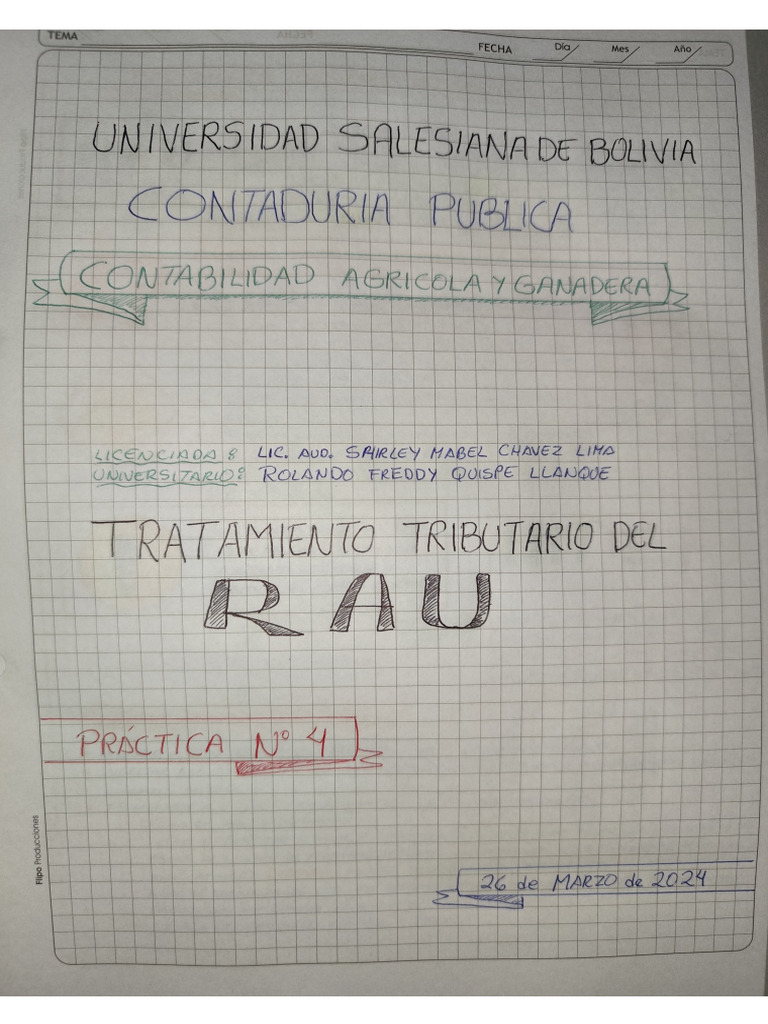 TEMA
FECHA Día Mes Año
UNIVERSIDAD SALESIANA DE BOLIVIA
CONTADURIA PUBLICA
CONTABILIDAD AGRICOLA Y GANADERA
LICENCIADA: LIC. AUD. SHIRLEY MABEL CHAVEZ LIMA
UNIVERSITARIO: ROLANDO FREDDY QUISPE LLANQUE
TRATAMIENTO TRIBUTARIO DEL
RAU
PRÁCTICA Nº 4
Flipo Producciones
26 de MARZO de 2024